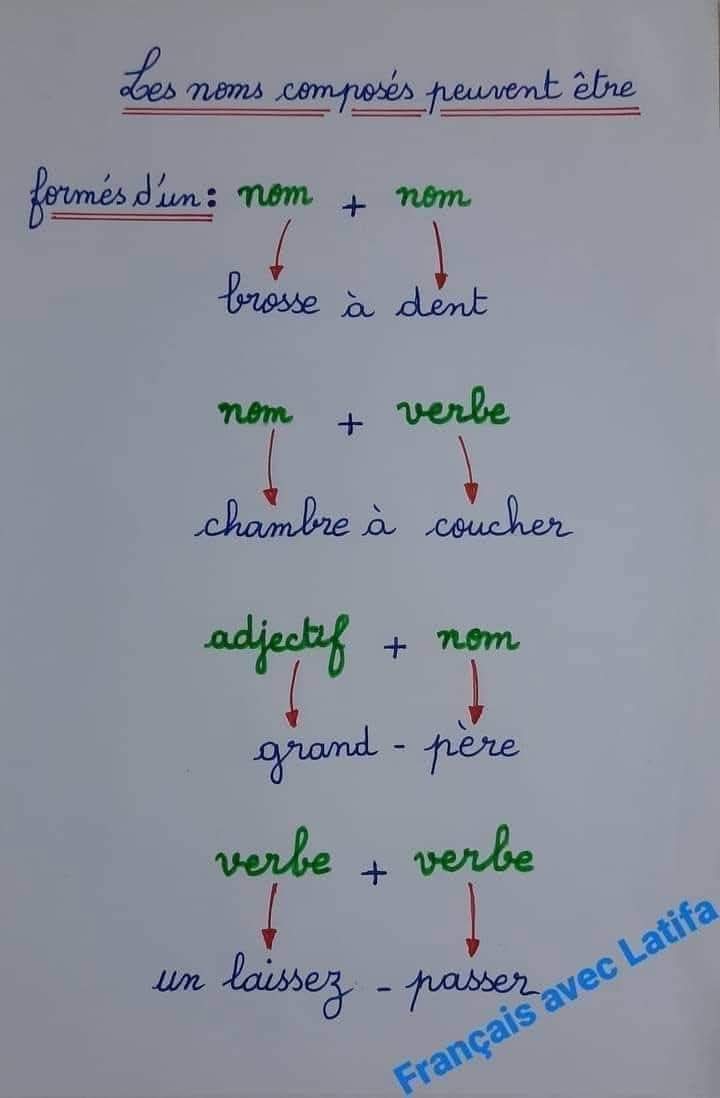 Les noms composés peuvent être
formés d'un : nom + nom
brosse à dent
nom + verbe
chambre à coucher
adjectif + nom
grand - père
verbe + verbe
un laissez - passer
Français avec Latifa